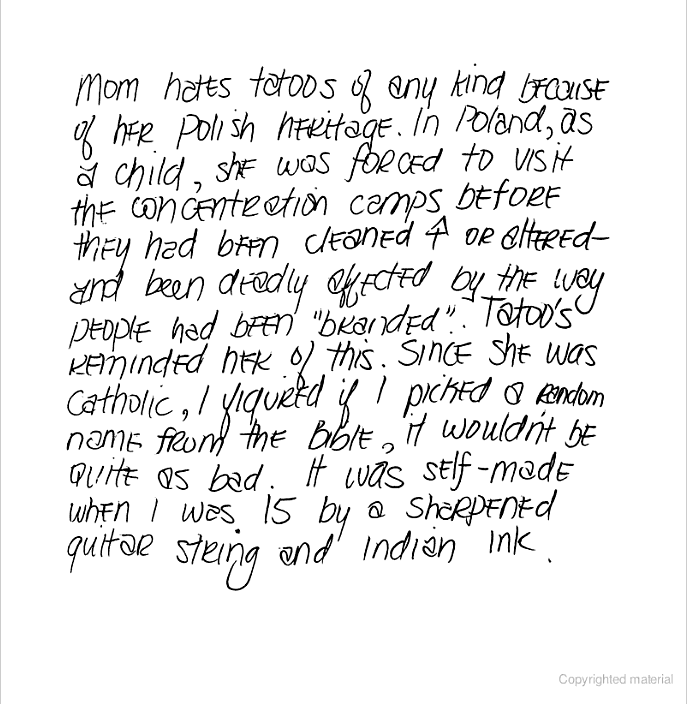 Mom hates tatoos of any kind because
of her Polish heritage. In Poland, as
a child, she was forced to visit
the concentration camps before
they had been cleaned ↑ or altered—
and been deadly affected by the way
people had been "branded". Tatoo's
reminded her of this. Since she was
Catholic, I figured if I picked a random
name from the Bible, it wouldn't be
quite as bad. It was self-made
when I was 15 by a sharpened
guitar string and indian ink.
Copyrighted material